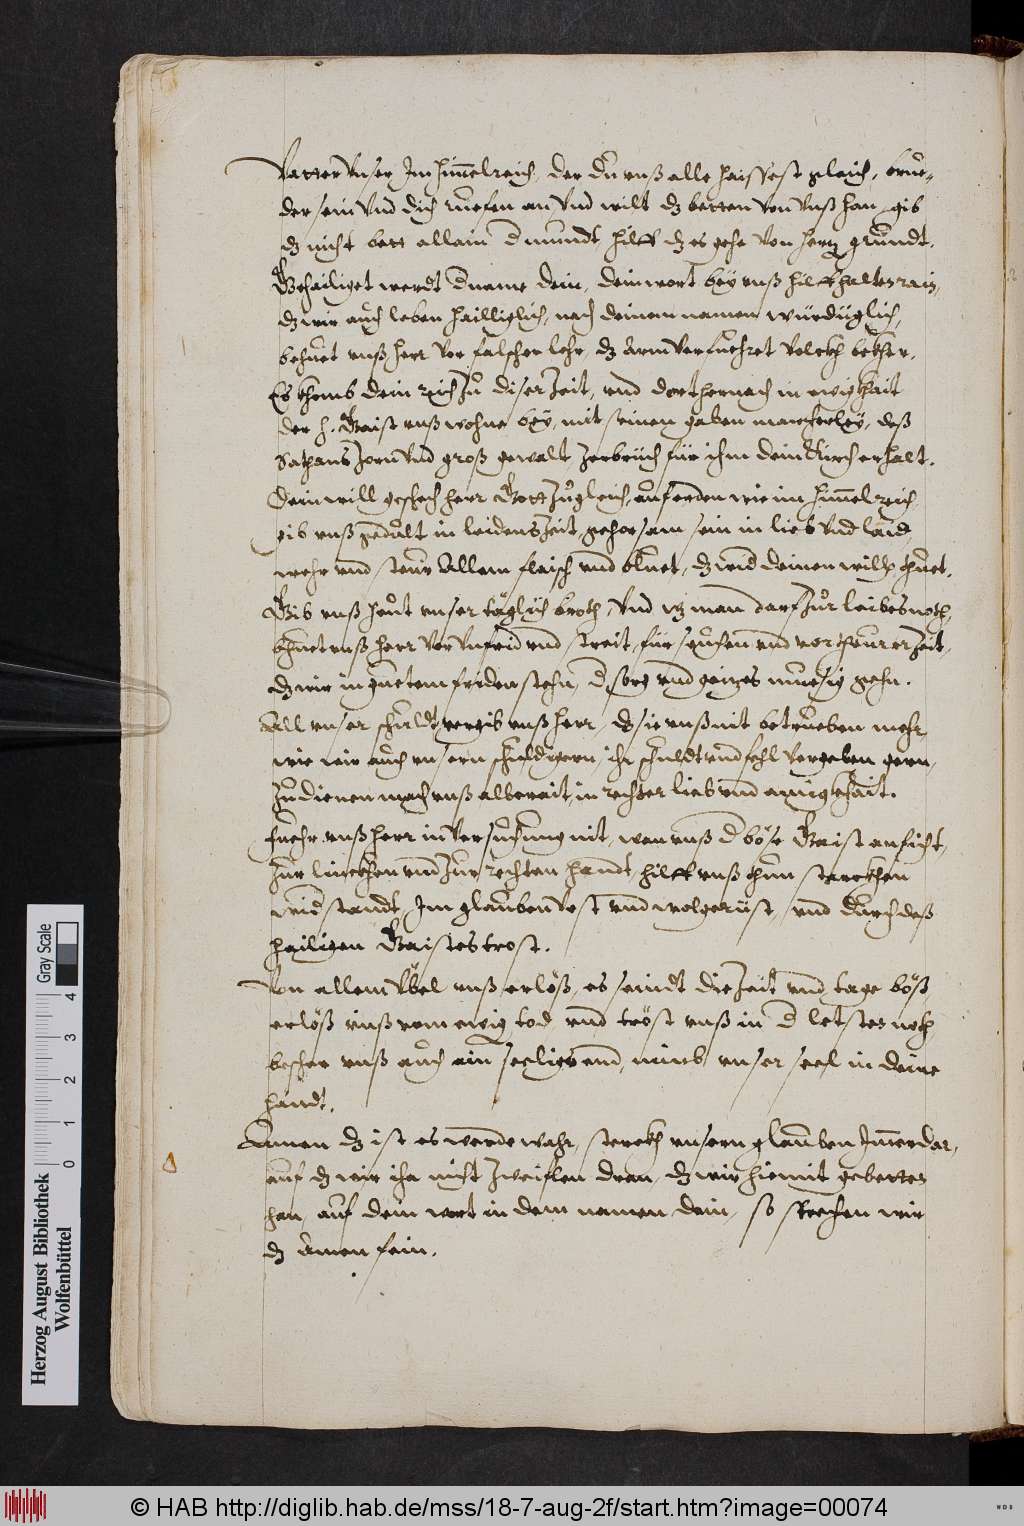 Vatter Vnser Im himelreich, der du vnß alle haissest gleich, brue-
der sein vnd dich rueffen an vnd wilt dz betten von vnß han, gib
dz nicht bett allain d mundt hilff dz es gehe von hertz grundt.
Gehailiget werdt d name dein, dein wort bey vnß hilff halten rain,
dz wir auch leben hailliglich, nach deinem namen würdiglich,
behuet vnß herr vor falscher lehr, dz arm verfuehret volckh bekher.
Es khomb dein reich zu diser Zeit, vnd dort hernach in ewigkhait
der h. Gaist vnß wohne bey, mit seinen gaben mancherley, deß
Sathans Zorn vnd groß gewalt, zerbrüch für ihm dein Kirch erhalt.
Dein will geschech herr Gott zugleich, auf erden wie im himelreich
gib vnß gedult in leidens Zeit, gehorsam sein in lieb vnd laid,
wehr vnd steur allem flaisch vnd bluet, dz wid deinen willen thuet.
Gib vnß heut vnser täglich broth, vnd wz man darf zur leibes noth,
bhuet vnß herr vor vnfrid vnd streit, für seuchen vnd vor theurer Zeit,
dz wir in guetem friden stehn, d sorg vnd geizes muesig gehn.
All vnser schuldt vergib vnß herr, dz sie vnß nit betrueben mehr,
wie wir auch vnsern schuldigern, ihr schuldt vnd fehl vergeben gern,
Zu dienen mach vnß alle berait, in rechter lieb vnd ainigkhait.
Fuehr vnß herr in versuchung nit, wan vnß d böse Gaist anficht,
zur linckhen vnd zur rechten handt, hilff vnß thun starckhen
widstandt, Im glauben vest vnd wolgerüst, vnd durch deß
hailigen Gaistes trost.
Von allem Vbel vnß erlöß, es seindt die Zeit vnd tage böß
erlöß vnß vom ewig tod, vnd tröst vnß in d letsten noth
bescher vnß auch ein seeligs end, nimb vnser seel in deine
händt.
Amen dz ist es werde wahr, sterckh vnsern glauben Immerdar,
auf dz wir ia nicht zweiflen dran, dz wir hiemit gebetten
han, auf dein wort in dem namen dein, so sprechen wir
dz Amen fein.
Herzog August Bibliothek
Wolfenbüttel
0 1 2 3 4
Gray Scale
© HAB http://diglib.hab.de/mss/18-7-aug-2f/start.htm?image=00074